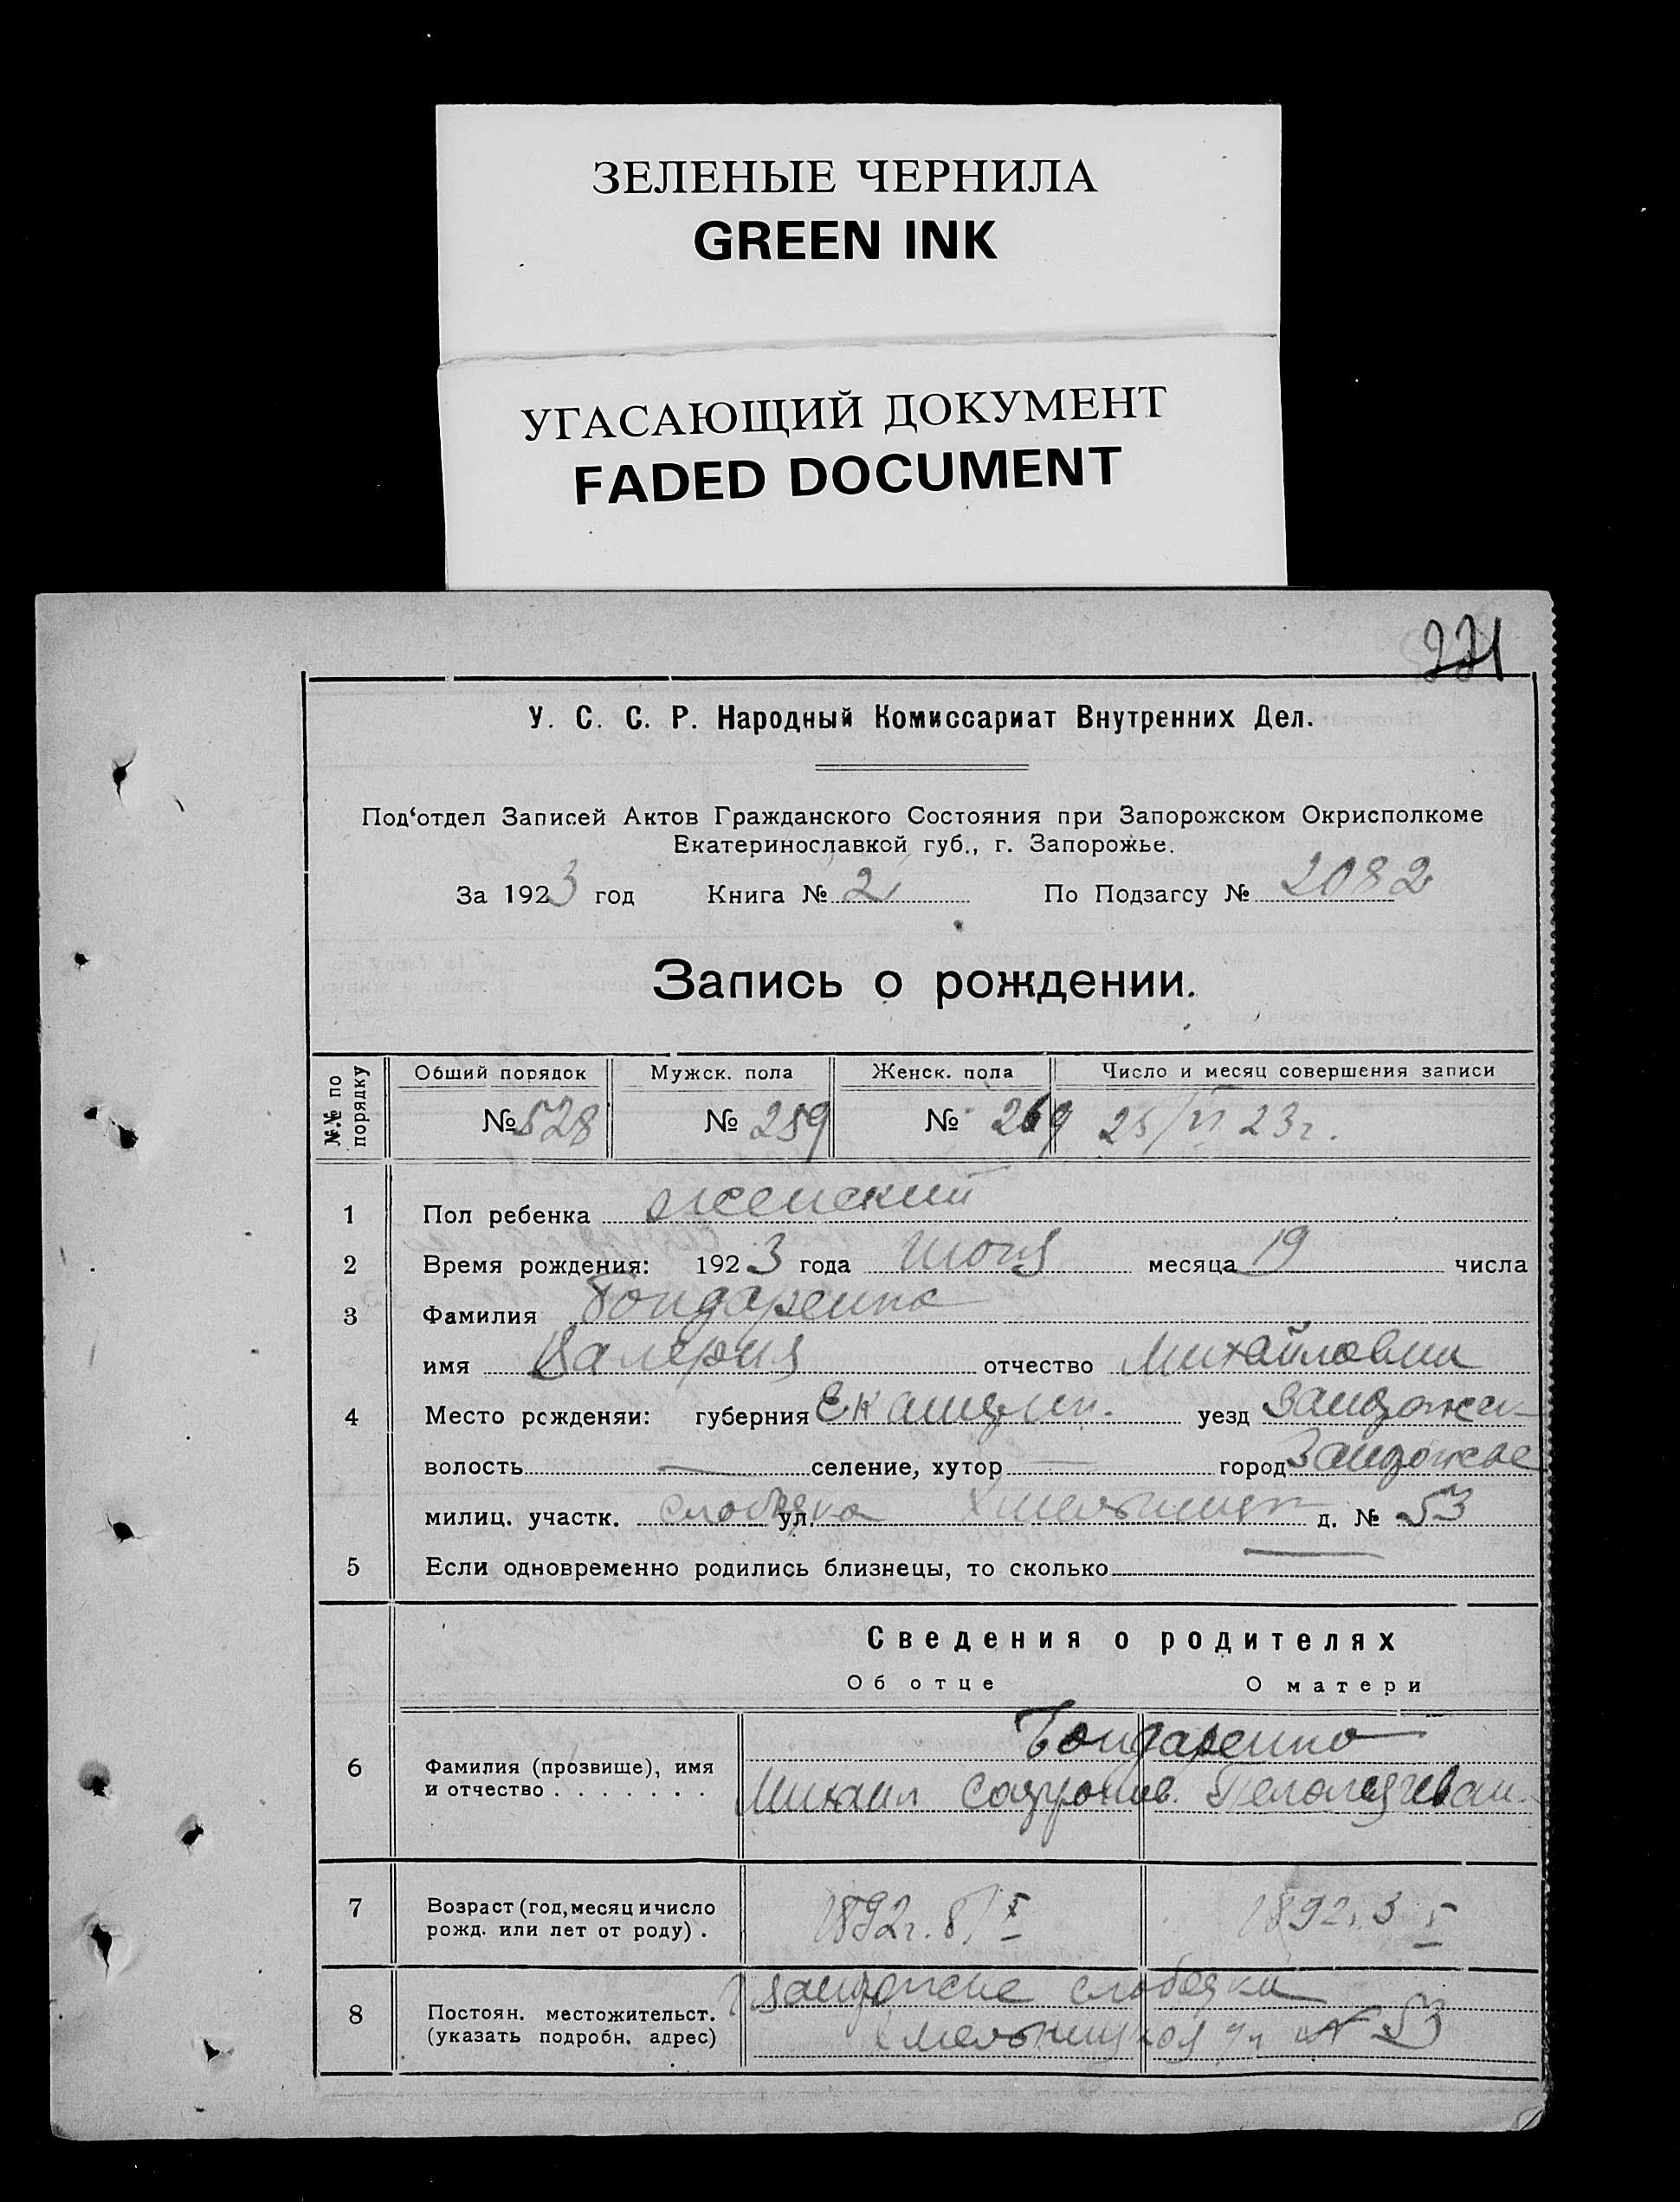 ЗЕЛЕНЫЕ ЧЕРНИЛА
GREEN INK
УГАСАЮЩИЙ ДОКУМЕНТ
FADED DOCUMENT
221
У. С. С. Р. Народный Комиссариат Внутренних Дел.
Под‘отдел Записей Актов Гражданского Состояния при Запорожском Окрисполкоме
Екатеринославкой губ., г. Запорожье.
За 1923 год Книга № 2 По Подзагсу № 2082
Запись о рождении.
№.№ по порядку Обший порядок Мужск. пола Женск. пола Число и месяц совершения записи
№ 528 № 259 № 269 25/VI 23г.
1 Пол ребенка женский
2 Время рождения: 1923 года июня месяца 19 числа
3 Фамилия Бондаренко
имя Валерия отчество Михайловна
4 Место рожденяи: губерния Екатерин. уезд Запорожск
волость — селение, хутор — город Запорожье
милиц. участк. слободка ул. д. № 53
5 Если одновременно родились близнецы, то сколько —
Сведения о родителях
Об отце О матери
Бондаренко
6 Фамилия (прозвище), имя
и отчество . . . . . . . Михаил Софронов. Пелагея Иван.
7 Возраст (год, месяц и число
рожд. или лет от роду) . 1892г. 8/X 1892г. 3
8 Постоян. местожительст. Запорожье слободка
(указать подробн. адрес) ул № 53